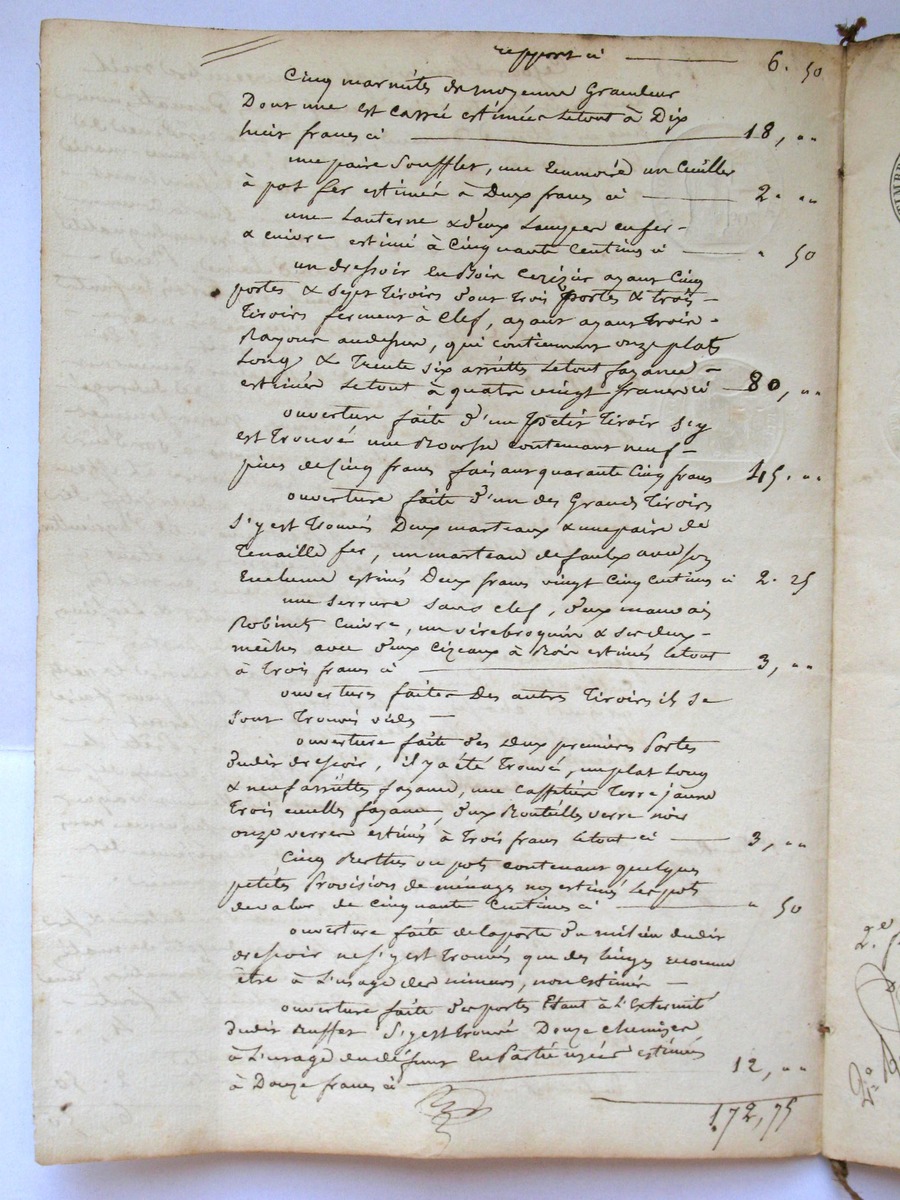 report ci — 6. 50
Cinq marmites de moyenne Grandeur
Dont une est cassée estimées le tout à Dix
huit francs ci — 18, "
une paire Soufflet, une un Cuiller
à pot fer estimés à Deux francs ci — 2. "
une Lanterne & deux Lampes en fer -
& cuivre estimé à Cinquante Centimes ci — " 50
un dressoir en Bois Cerisier ayant Cinq
portes & Sept Tiroirs dont Trois portes & trois -
Tiroirs ferment à Clef, ayant ayant Trois -
Rayons audessus, qui contiennent onze plats
Long & Trente Six assiettes le tout fayance -
estimés le tout à quatre vingt francs ci — 80, "
ouverture faite d'un petit Tiroir S'y
est Trouvé une Bourse contenant neuf -
pièces de Cinq francs faisant quarante Cinq francs 45. "
ouverture faite d'un des Grands Tiroirs
S'y est Trouvés Deux marteaux & une paire de
Tenaille fer, un marteau de faulx avec son
Enclume estimés Deux francs vingt Cinq Centimes ci 2. 25
une Serrure sans clef, deux mauvais
Robinets Cuivre, un virebroquin & ses deux -
mèches avec deux Cizeaux à Bois estimés le tout
à Trois francs ci — 3, "
ouvertures faites Des autres Tiroirs il se
Sont Trouvés vides —
ouverture faite des Deux premières Portes
dudit dressoir, il y a été Trouvé, un plat Long
& neuf assiettes fayance, une Caffetière Terre jaune
Trois ecuelles fayance, deux Bouteilles verre noir
onze verres estimés à Trois francs le tout ci — 3, "
Cinq Berthes ou pots contenant quelques
petites Provisions de ménages non estimés Les pots
de valeur de cinquante Centimes ci — " 50
ouverture faite de la porte du milieu dudit
dressoir ne S'y est Trouvés que des Linges reconnu
être à L'usage des mineurs, non estimés —
ouverture faite des portes Etant à L'extremité
dudit Buffet S'y est trouvé Douze chemises
à L'usage du défunt En Partie usées estimées
à Douze francs ci — 12, "
172, 75